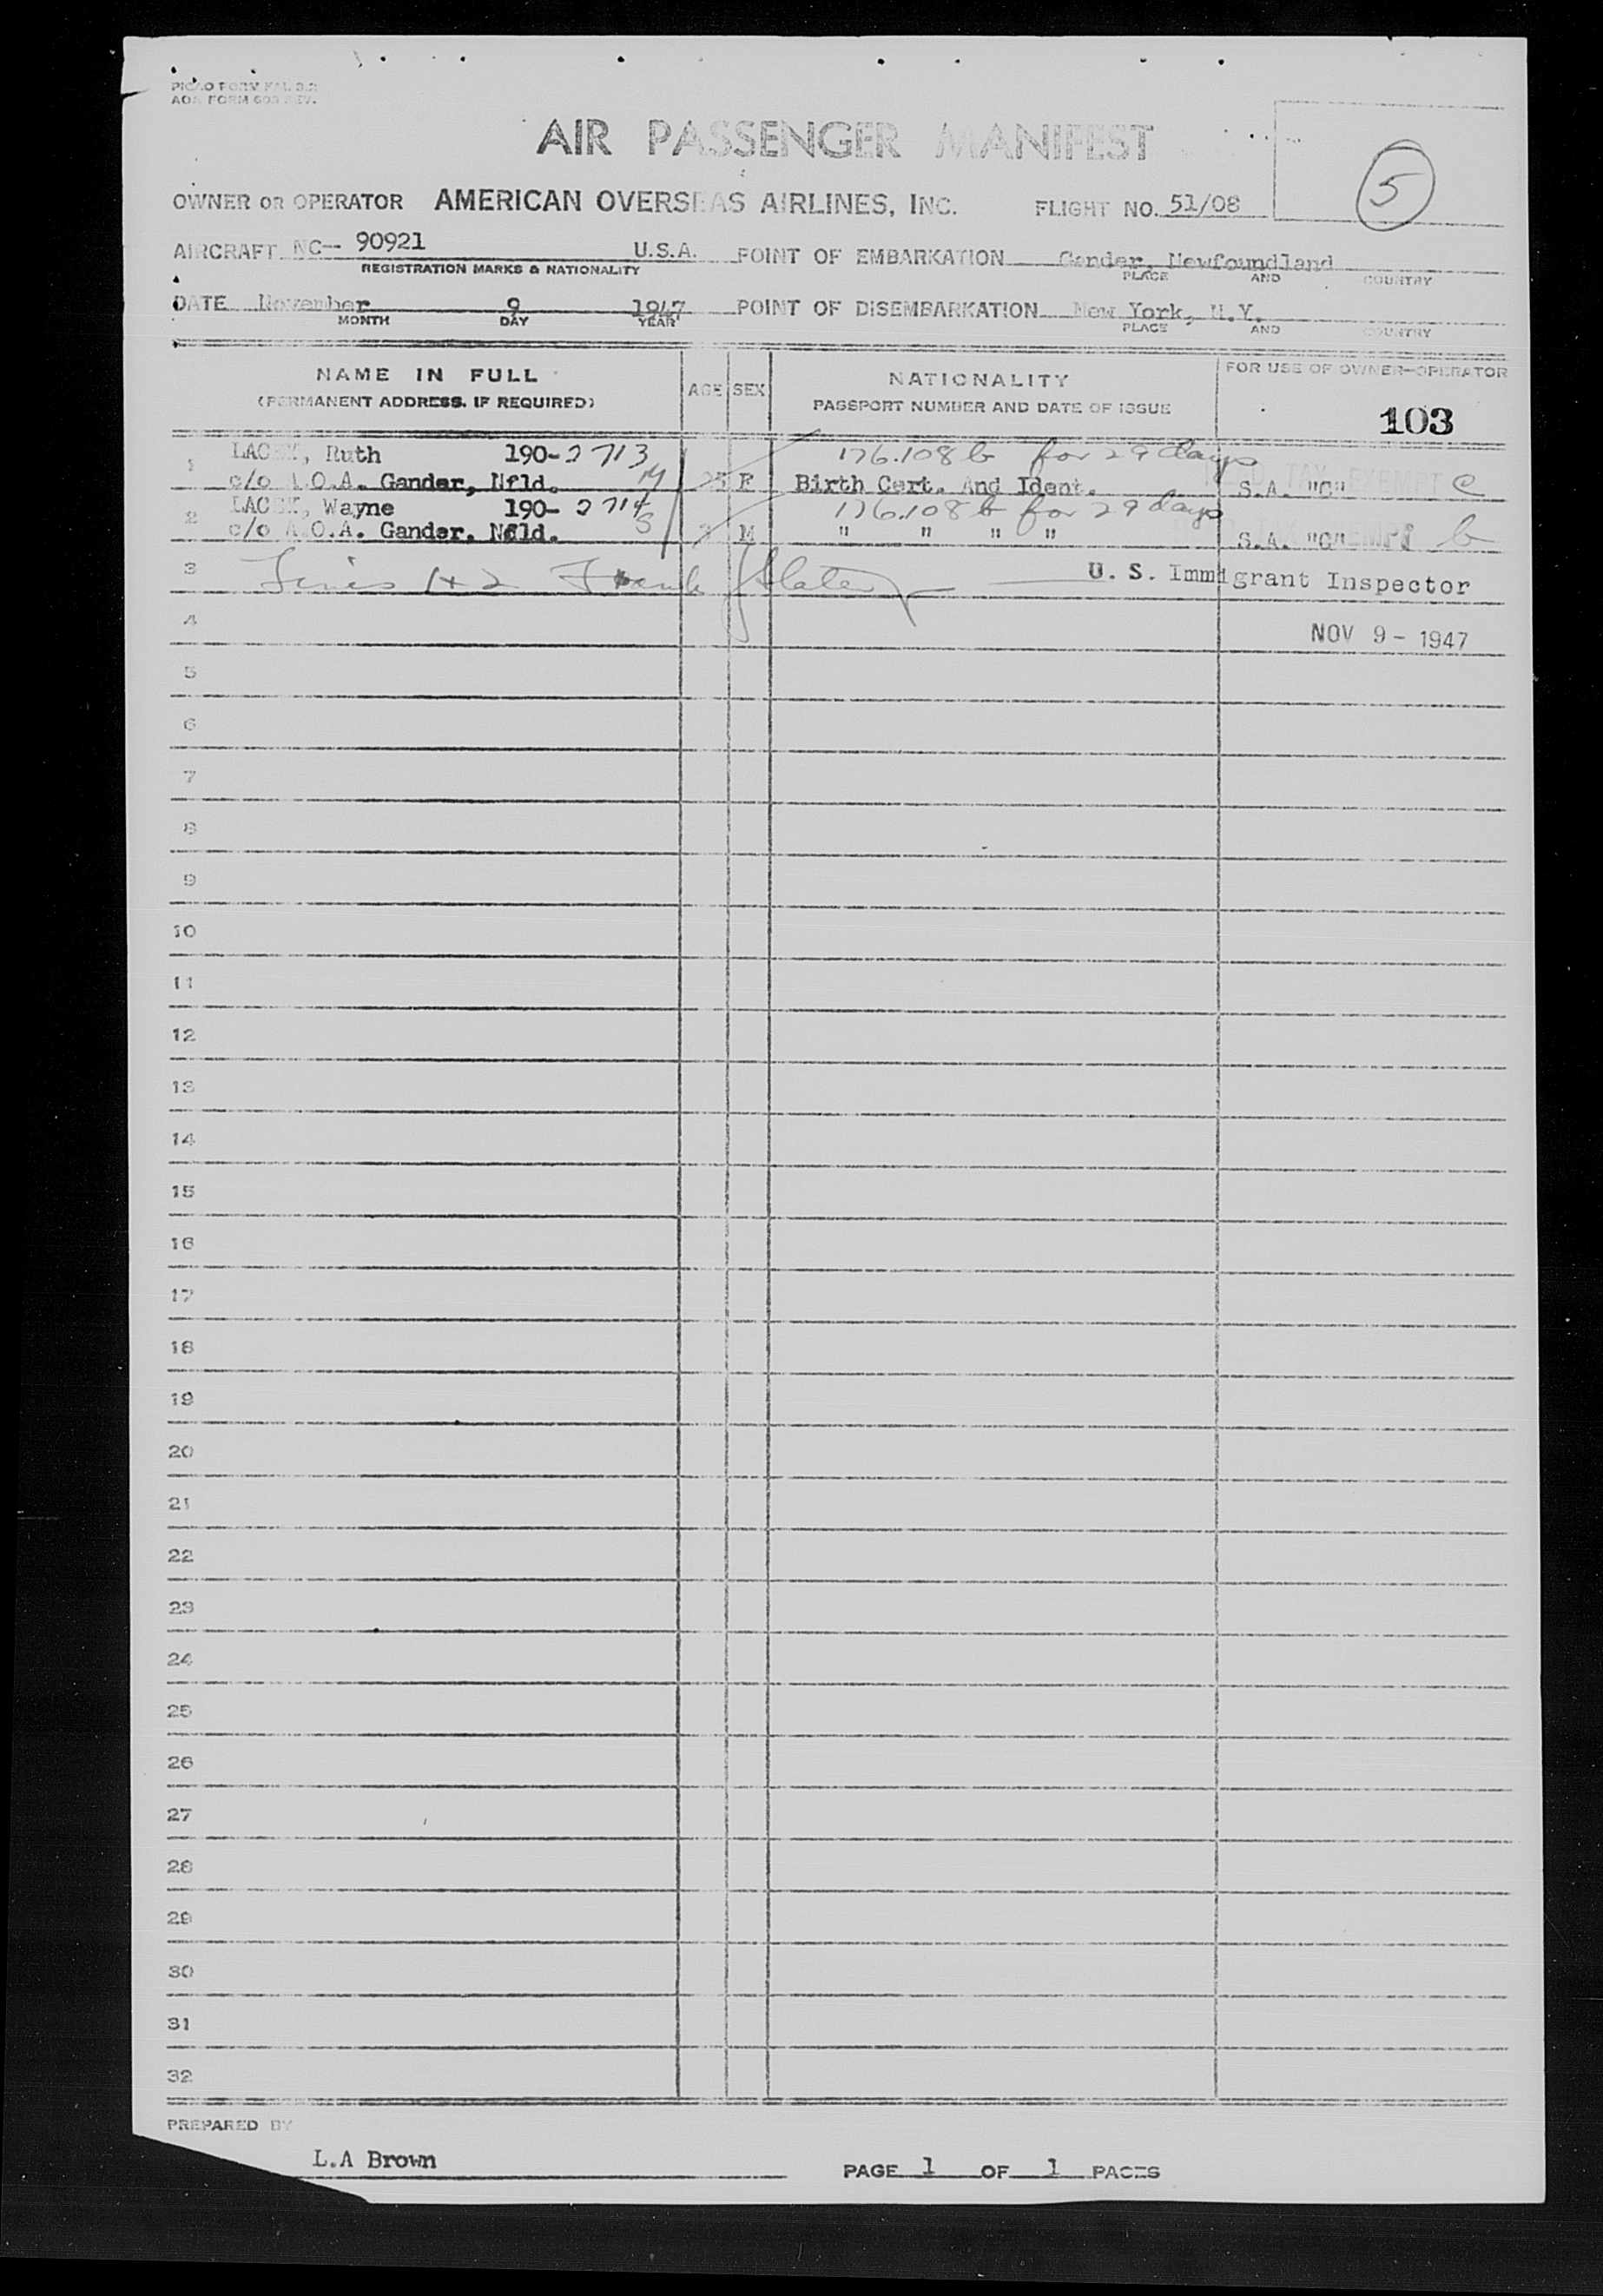 AIR PASSENGER MANIFEST
5
OWNER OR OPERATOR AMERICAN OVERSEAS AIRLINES, INC. FLIGHT NO. 51/08
AIRCRAFT NC- 90921 U.S.A. POINT OF EMBARKATION Gander, Newfoundland
REGISTRATION MARKS & NATIONALITY PLACE AND COUNTRY
DATE November 9 1947 POINT OF DISEMBARKATION New York, N.Y.
MONTH DAY YEAR PLACE AND COUNTRY
NAME IN FULL AGE SEX NATIONALITY FOR USE OF OWNER-OPERATOR
(PERMANENT ADDRESS, IF REQUIRED) PASSPORT NUMBER AND DATE OF ISSUE 103
1 Ruth 190-2713 176.108 b for 29 days
c/o A.O.A. Gander, Nfld. M F Birth Cert. And Ident. TAX EXEMPT S.A. "C" C
2 Wayne 190-2714 176.108 b for 29 days
c/o A.O.A. Gander, Nfld. S M " " " " S.A. "C" b
3 Lines 1+2 Frank Slater U. S. Immigrant Inspector
4 NOV 9 - 1947
5
6
7
8
9
10
11
12
13
14
15
16
17
18
19
20
21
22
23
24
25
26
27
28
29
30
31
32
PREPARED BY
L.A Brown
PAGE 1 OF 1 PAGES